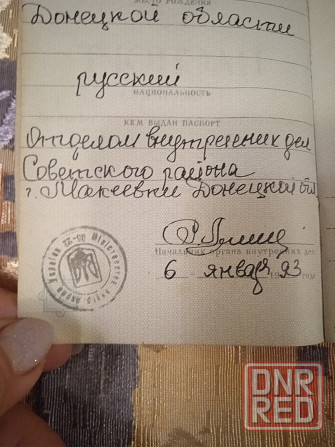 МЕСТО РОЖДЕНИЯ
Донецкой области
русский
НАЦИОНАЛЬНОСТЬ
КЕМ ВЫДАН ПАСПОРТ
Отделом внутренних дел
Советского района
г. Макеевки Донецкой обл
Начальник органа внутренних дел
6 января 93
DNR
RED